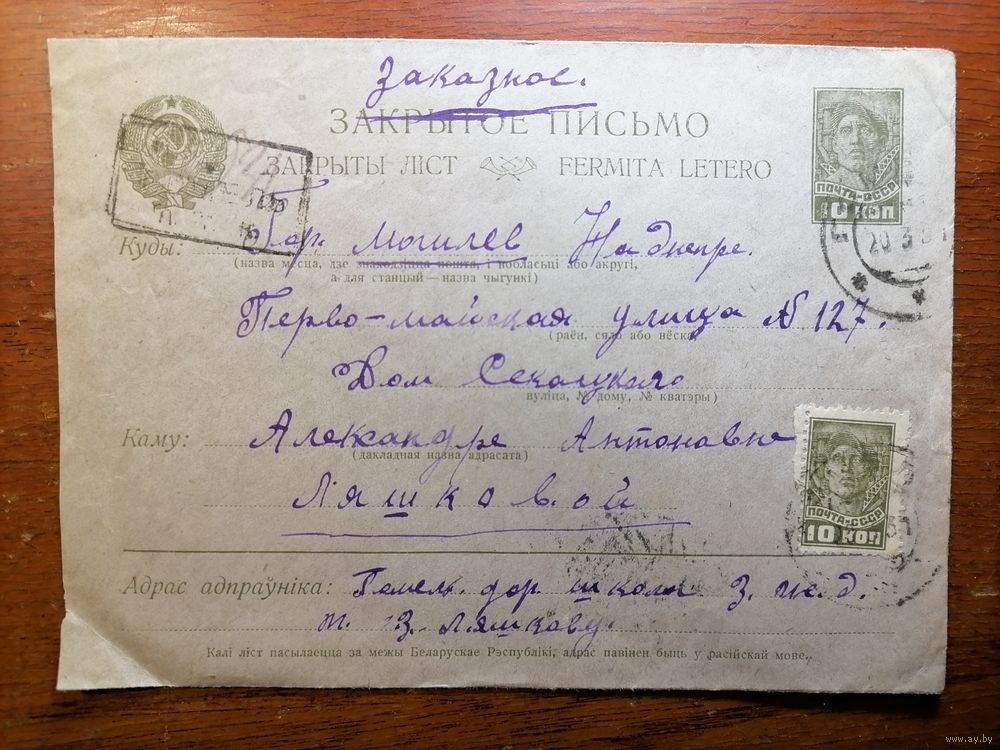 Заказное.
ЗАКРЫТОЕ ПИСЬМО
ЗАКРЫТЫ ЛІСТ FERMITA LETERO
ПОЧТА-СССР
10 КОП
20 3
Куды: Гор. Могилев На Днепре.
(назва месца, дзе знаходзіцца пошта, і вобласьці або акругі,
а для станцый — назва чыгункі)
Перво-майская улица № 127.
(раён, сяло або вёска)
Дом
вуліца, № дому, № кватэры)
Каму: Александре Антоновне
(дакладная назва адрасата)
Ляшковой
ПОЧТА-СССР
10 КОП
Адрас адпраўніка: Гомель. дор школа З. ж. д.
Ляшкову.
Калі ліст пасылаецца за межы Беларускае Рэспублікі, адрас павінен быць у расійскай мове.
www.ay.by